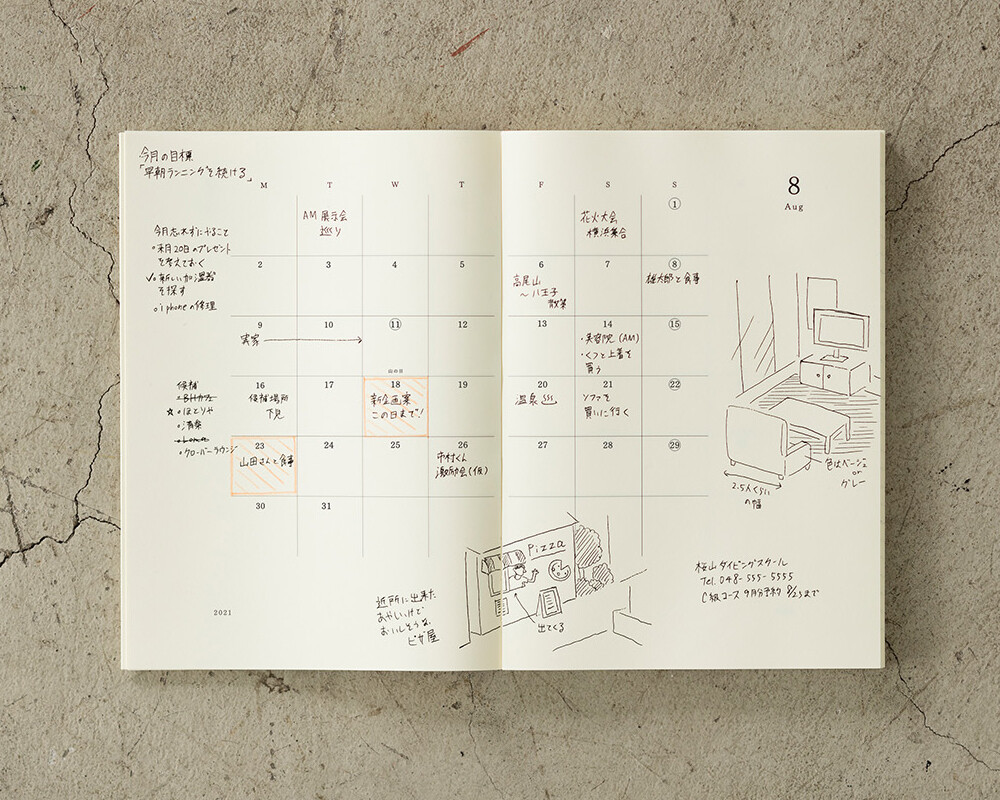 今月の目標
「早朝ランニングを続ける」
M T W T F S S
8
Aug
今月忘れずにやること
•来月20日のプレゼント
を考えておく
✓•新しい加湿器
を探す
•iphoneの修理
AM 展示会
巡り
花火大会
横浜集合
1
2 3 4 5 6 7 8
高尾山
〜八王子
散策
雄太郎と食事
9 10 11 12 13 14 15
実家
・美容院(AM)
・くつと上着を
買う
山の日
候補
•BHカフェ
☆•ほとりや
•清葉
•グローバーラウンジ
16 17 18 19 20 21 22
候補場所
下見
新企画案
この日まで!
温泉
ソファを
買いに行く
23 24 25 26 27 28 29
山田さんと食事
中村くん
激励会(仮)
30 31
色はベージュ
or
グレー
2.5人くらい
の幅
Pizza
出てくる
近所に出来た
あやしいけど
おいしそうな
ピザ屋
桜山ダイビングスクール
Tel. 048-555-5555
C級コース 9月分予約 8/25まで
2021